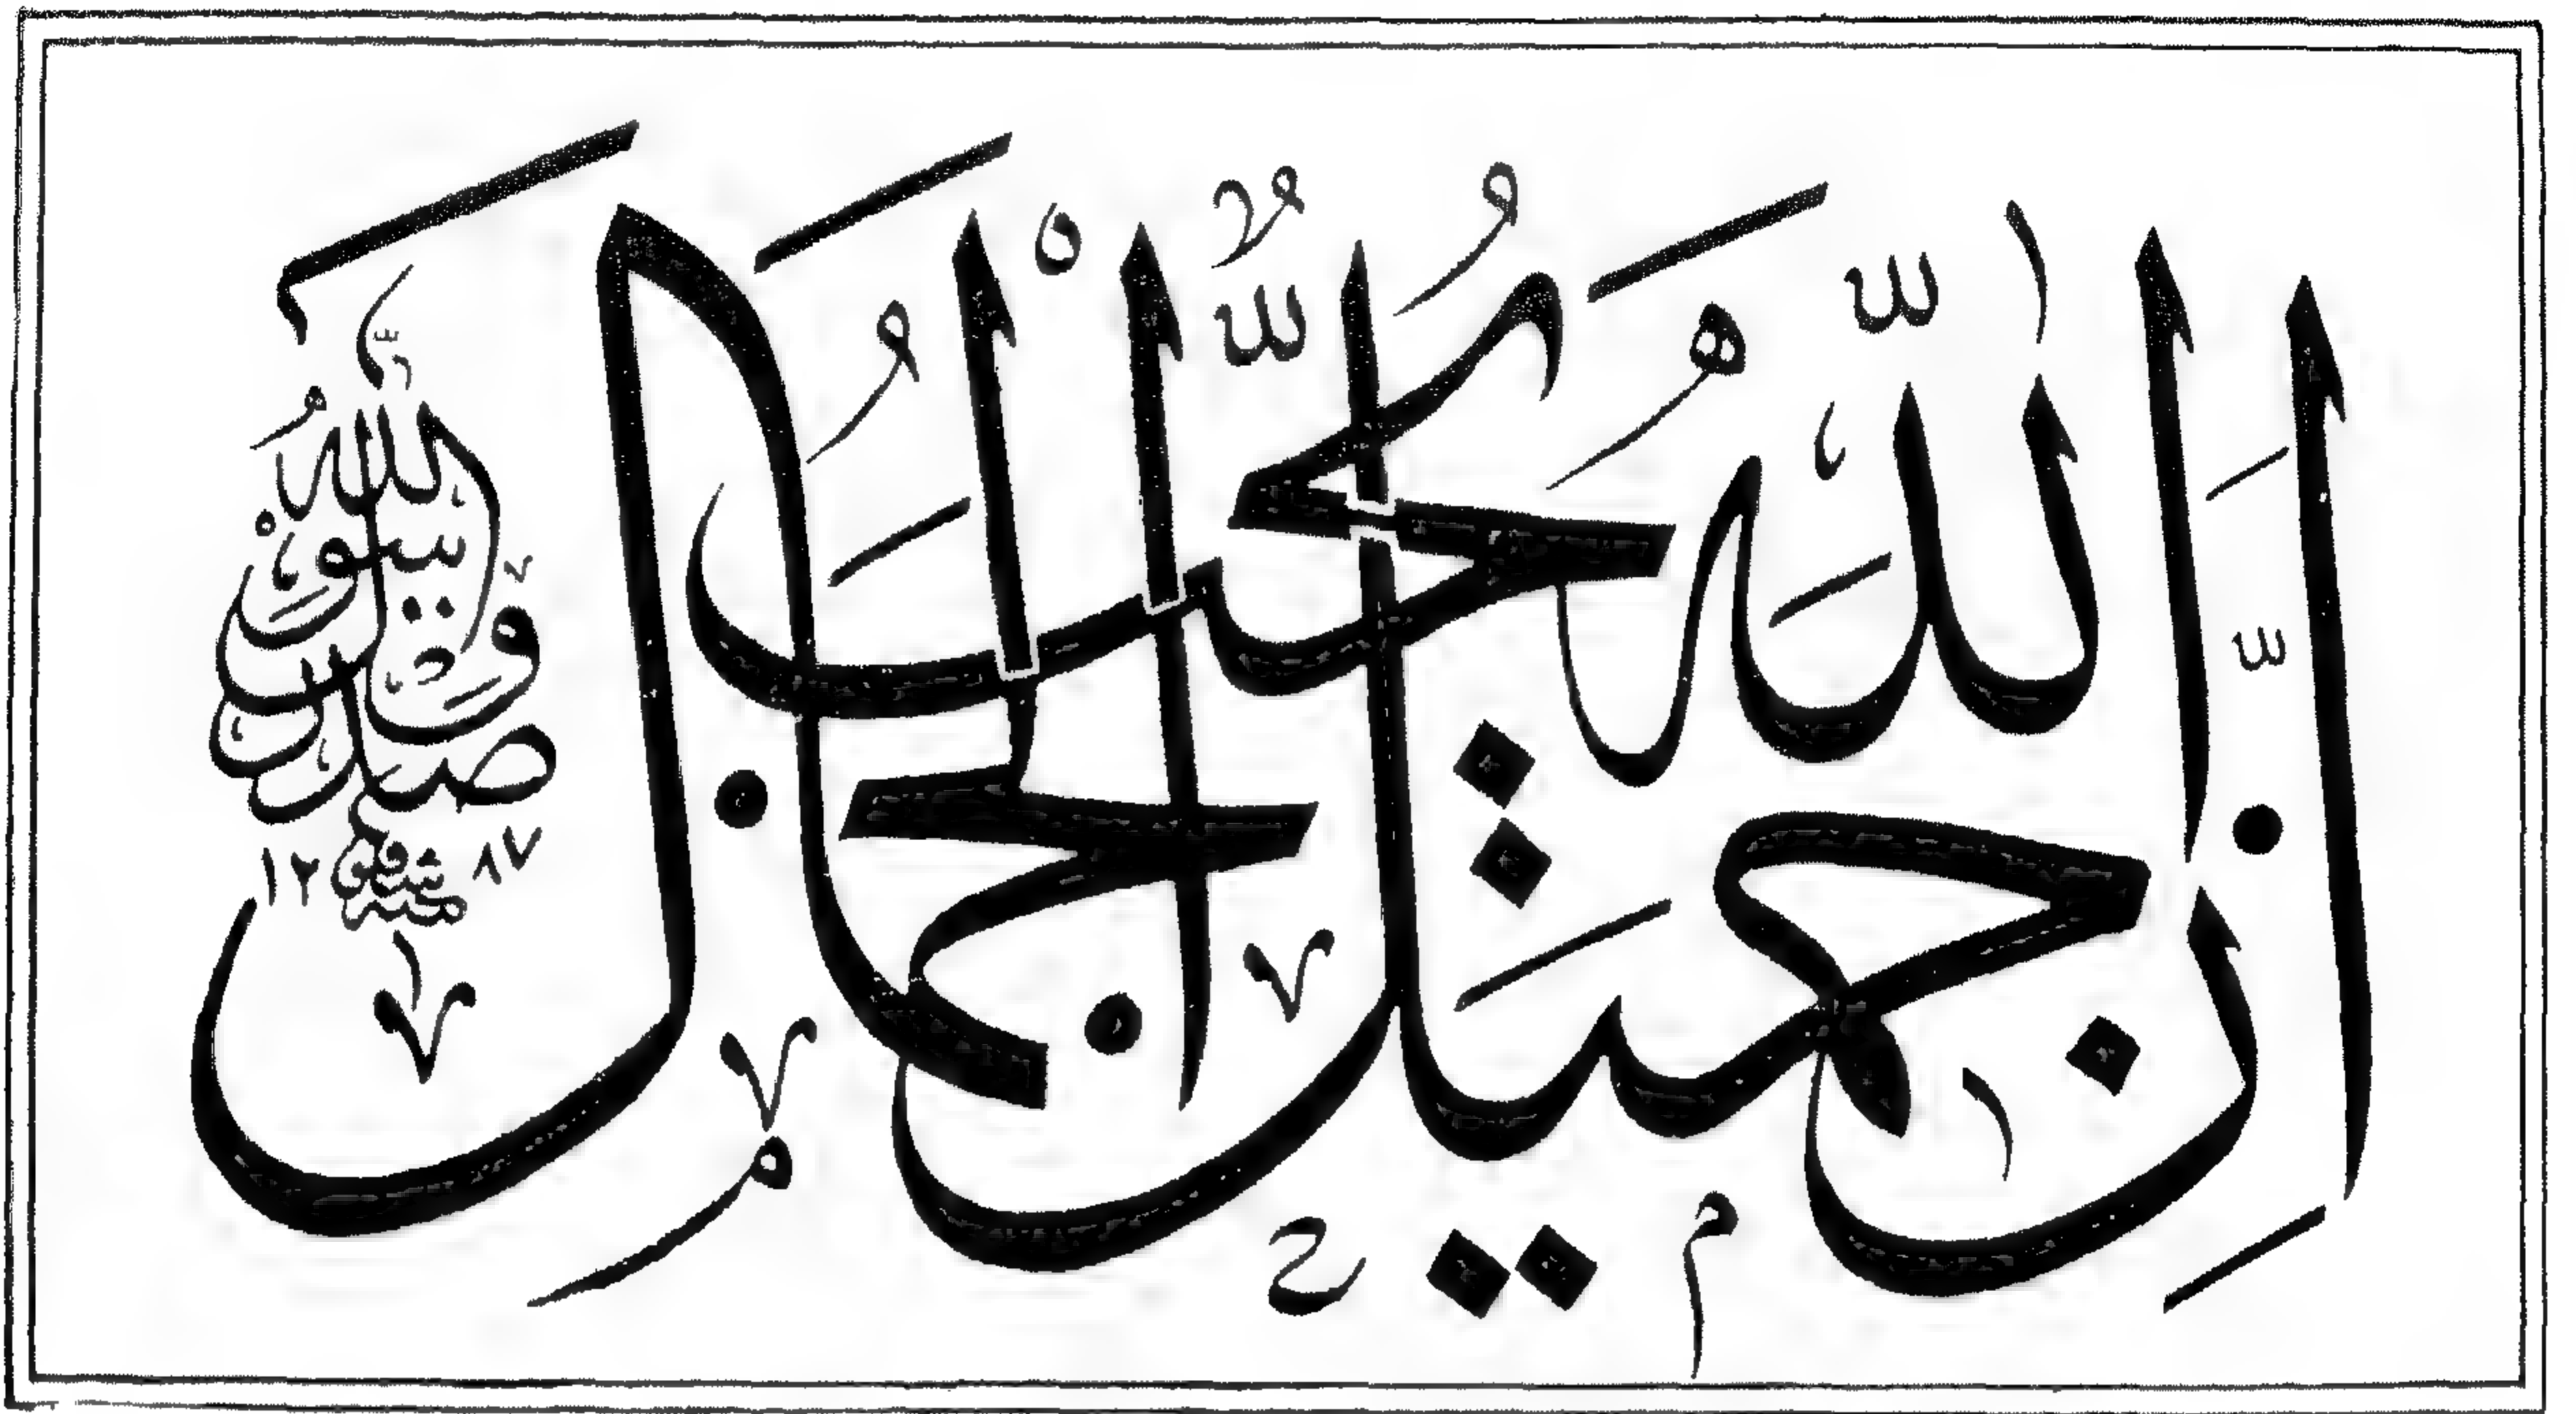 اِنَّ اللّٰهَ جَمِيلٌ يُحِبُّ الْجَمَالَ
صَدَقَ رَسُولُ اللّٰهِ
شفيق
١٢٨٧